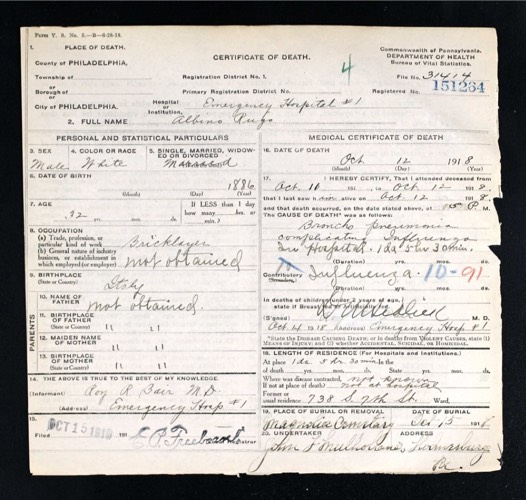 Form V. S. No. 5.—B—6-28-18.
1. PLACE OF DEATH.
County of PHILADELPHIA,
Township of
or
Borough of
or
City of PHILADELPHIA.
CERTIFICATE OF DEATH.
Registration District No. 1.
4
Primary Registration District No.
Hospital or Institution, Emergency Hospital #1
Commonwealth of Pennsylvania.
DEPARTMENT OF HEALTH
Bureau of Vital Statistics.
File No. 31414
Registered No. 151264
2. FULL NAME Albino Rugo
PERSONAL AND STATISTICAL PARTICULARS
3. SEX
Male
4. COLOR OR RACE
White
5. SINGLE, MARRIED, WIDOWED OR DIVORCED
Married
6. DATE OF BIRTH
1886
(Month) (Day) (Year)
7. AGE
32
IF LESS than 1 day
how many hrs. or min.
8. OCCUPATION
(a) Trade, profession, or particular kind of work Bricklayer
(b) General nature of industry, business, or establishment in which employed (or employer) not obtained
9. BIRTHPLACE
(State or Country) Italy
PARENTS
10. NAME OF FATHER
not obtained
11. BIRTHPLACE OF FATHER
(State or Country) " "
12. MAIDEN NAME OF MOTHER
" "
13. BIRTHPLACE OF MOTHER
(State or Country) " "
14. THE ABOVE IS TRUE TO THE BEST OF MY KNOWLEDGE.
(Informant) Roy R. Bair M.D.
(Address) Emergency Hosp #1
15.
Filed OCT 15 1918 191
Registrar
MEDICAL CERTIFICATE OF DEATH
16. DATE OF DEATH
Oct 12 1918
(Month) (Day) (Year)
17. I HEREBY CERTIFY, That I attended deceased from
Oct. 10 1918, to Oct 12 1918,
that I last saw h alive on Oct 12 1918,
and that death occurred, on the date stated above, at P M.
The CAUSE OF DEATH* was as follows:
Broncho Pneumonia
complicating Influenza
In Hospital. 1da 5hr 30min.
(Duration) yrs. mos. ds.
Contributory Influenza 10-91
(Secondary)
(Duration) yrs. mos. ds.
In deaths of children under 2 years of age, state if Breast or Artificially fed.
(Signed)
Oct. 4 1918 (Address) Emergency Hosp #1
*State the DISEASE CAUSING DEATH; or in deaths from VIOLENT CAUSES, state (1) MEANS OF INJURY; and (2) whether ACCIDENTAL, SUICIDAL, or HOMICIDAL.
18. LENGTH OF RESIDENCE (For Hospitals and Institutions).
At place 1da. 5hr. 30min. In the
of death yrs. mos. ds. State yrs. mos. ds.
Where was disease contracted, not known
If not at place of death? not at hospital
Former or
usual residence 738 S. 7th St. Ward.
19. PLACE OF BURIAL OR REMOVAL
Magnolia Cemetary
DATE OF BURIAL
Oct 15 191
20. UNDERTAKER